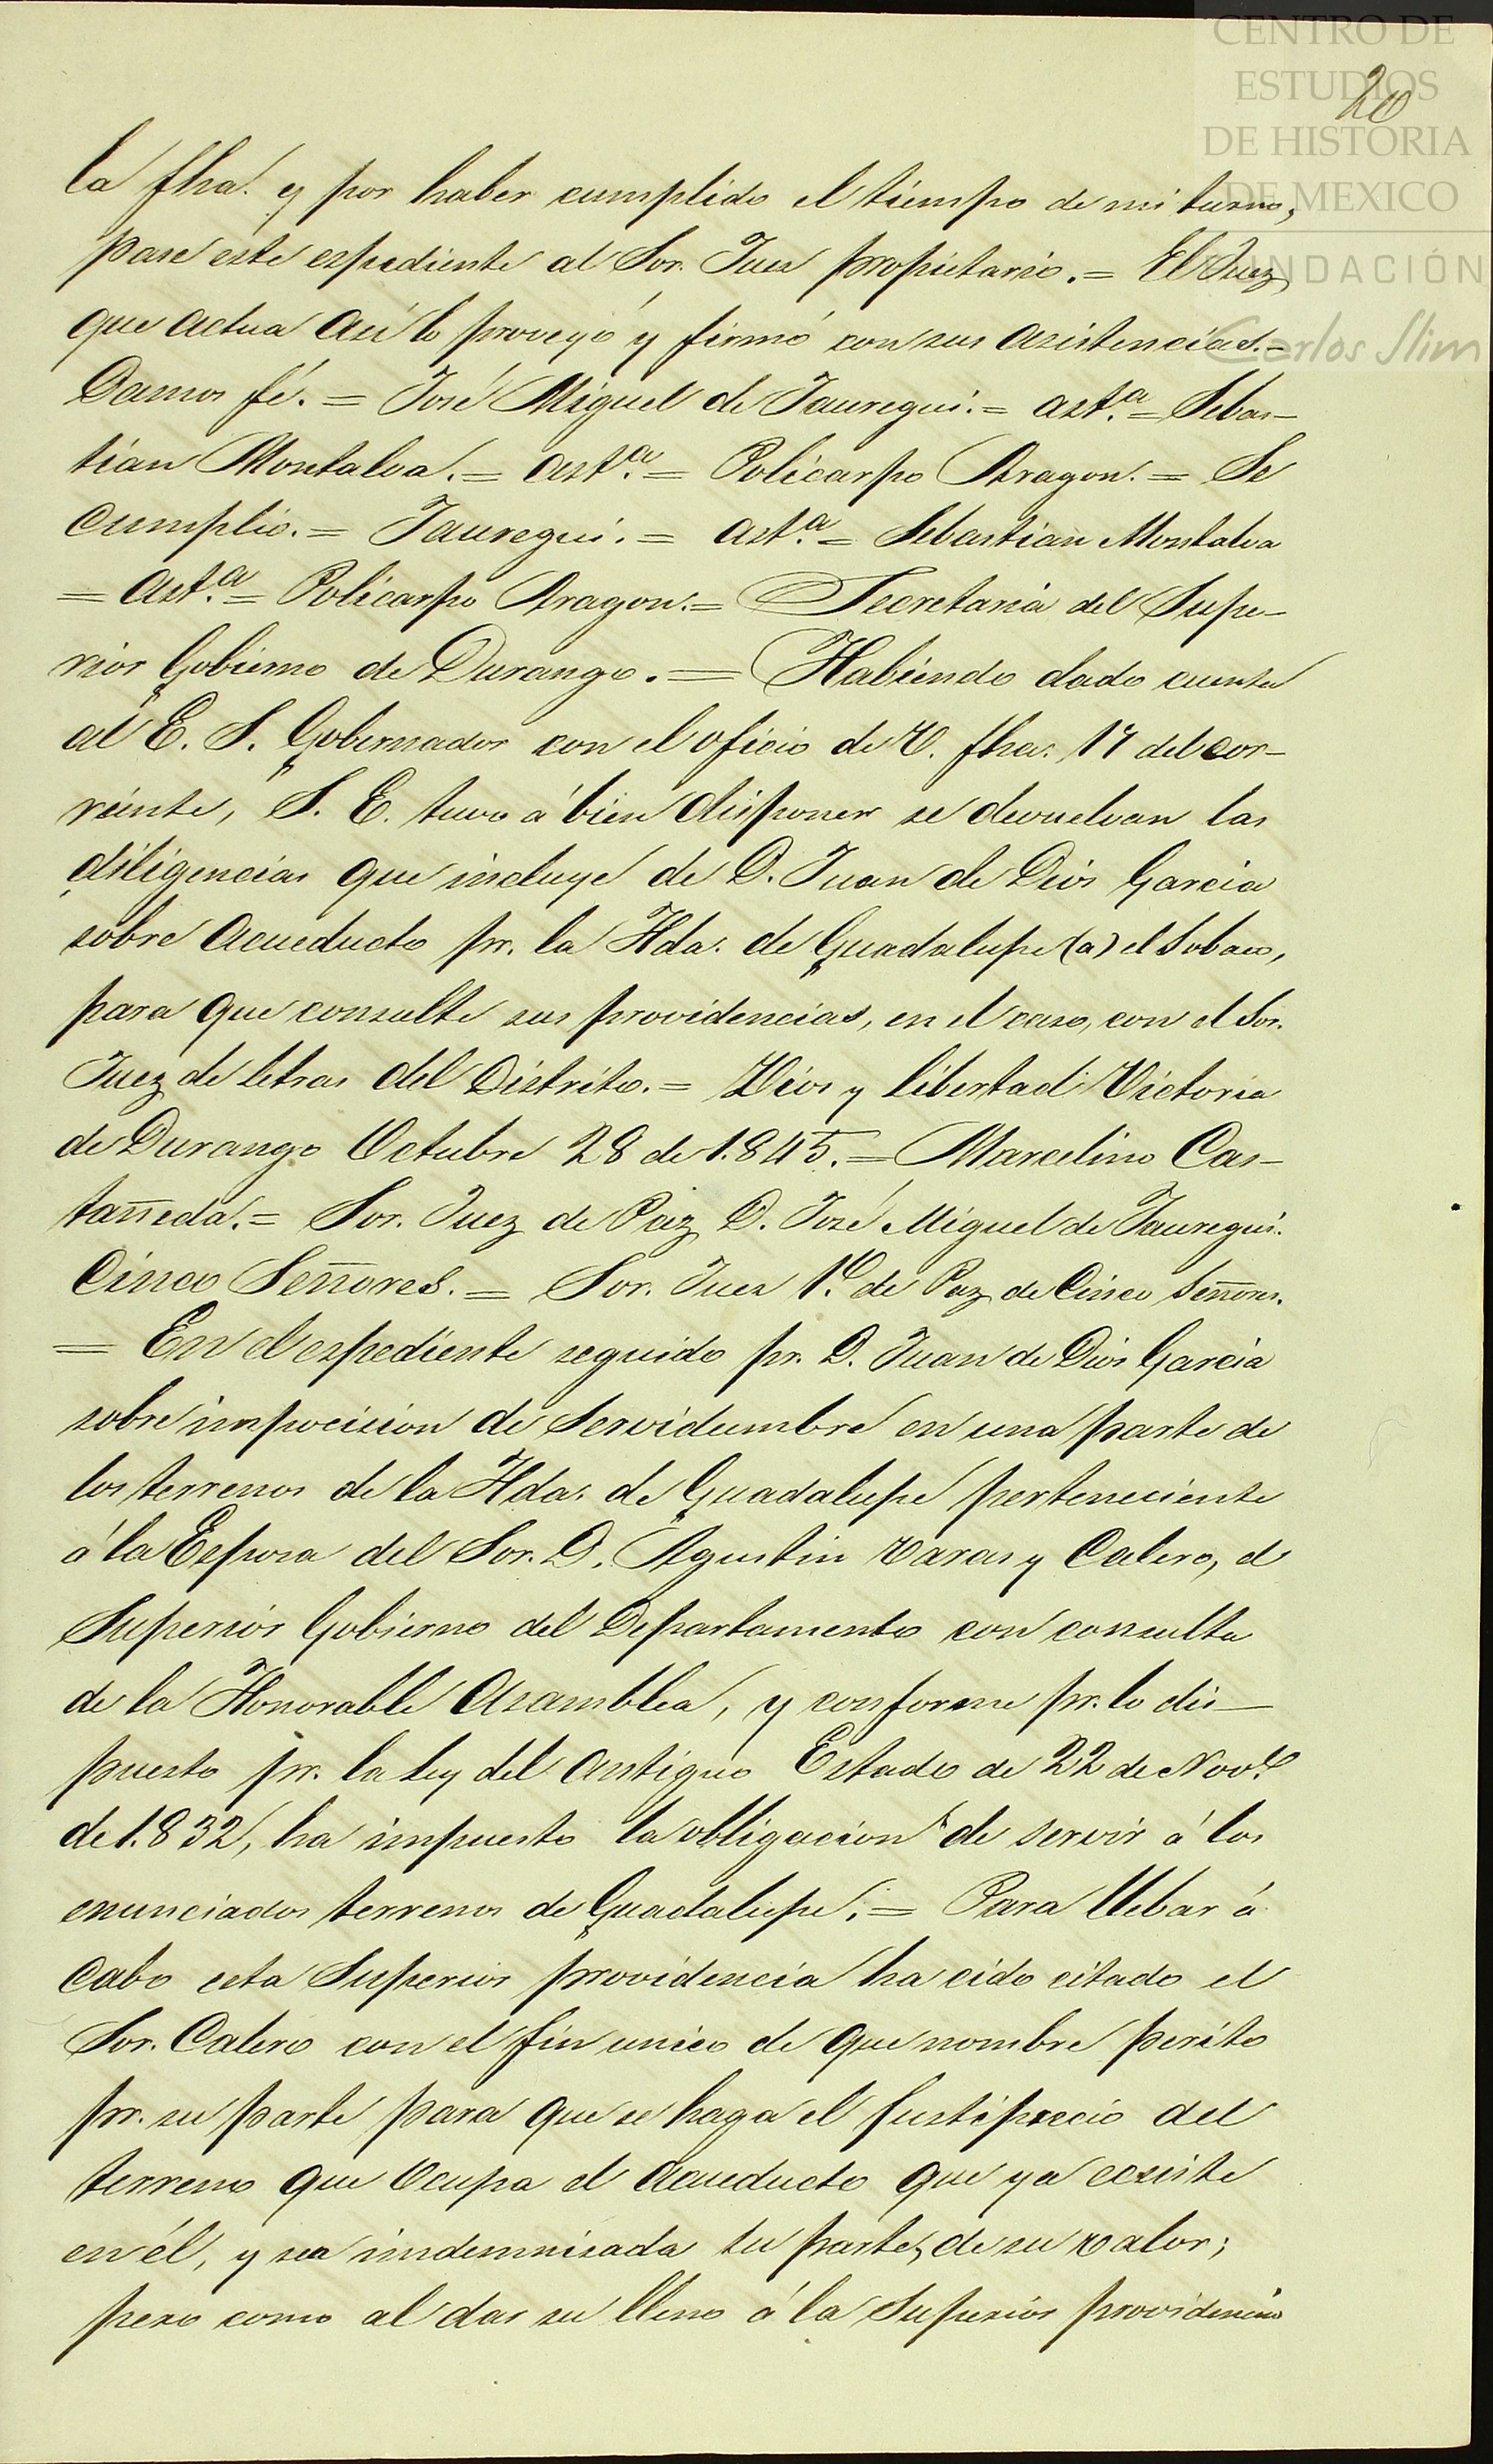 CENTRO DE
ESTUDIOS
DE HISTORIA
DE MEXICO
FUNDACIÓN
Carlos Slim
20
la fha. y por haber cumplido el tiempo de mi turno,
pase este espediente al Sor. Juez propietario.= El Juez
que actua así lo proveyó y firmó con sus asistencias.=
Damos fé.= José Miguel de Jauregui.= ast.ª= Sebas-
tian Montalva.= ast.ª= Policarpo Aragon.= Se
cumplio.= Jauregui.= ast.ª= Sebastian Montalva
= ast.ª= Policarpo Aragon.= Secretaria del Supe-
rior Gobierno de Durango.= Habiendo dado cuenta
al E. S. Gobernador con el oficio de V. fha. 17 del cor-
reinte, S. E. tuvo á bien disponer se devuelvan las
diligencias que incluye de D. Juan de Dios Garcia
sobre acueducto pr. la Hda. de Guadalupe (a) el Sobaco,
para que consulte sus providencias, en el caso, con el Sor.
Juez de letras del Distrito.= Dios y libertad Victoria
de Durango Octubre 28 de 1.845.= Marcelino Cas-
tañeda.= Sor. Juez de Paz D. José Miguel de Jauregui.
Cinco Señores.= Sor. Juez 1º. de Paz de Cinco Señores.
= En el espediente seguido pr. D. Juan de Dios Garcia
sobre impocision de servidumbre en una parte de
los terrenos de la Hda. de Guadalupe perteneciente
á la Esposa del Sor. D. Agustin Varas y Calero, el
Superior Gobierno del Departamento con consulta
de la Honorable Asamblea, y conforme pr. lo dis-
puesto pr. la ley del antiguo Estado de 22 de Nov.e
de 1.832, ha impuesto la obligacion de servir á los
enunciados terrenos de Guadalupe.= Para llebar á
cabo esta Superior providencia ha cido citado el
Sor. Calero con el fin unico de que nombre perito
pr. su parte para que se haga el justiprecio del
terreno que ocupa el acueducto que ya ecsiste
en él, y sea indemnisada su parte, de su valor;
pero como al dar su lleno á la Superior providencia